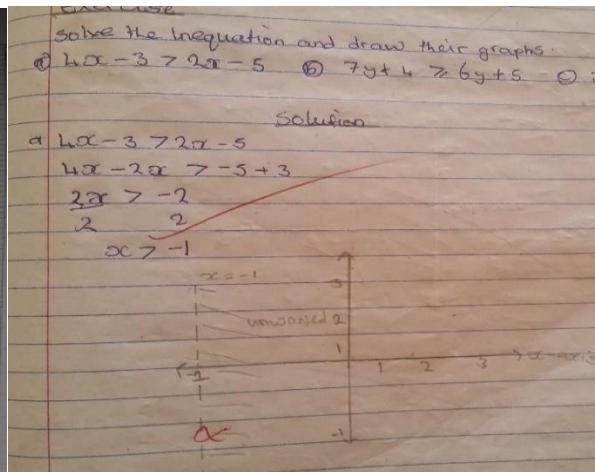 Exercise
Solve the Inequation and draw their graphs.
(a) 4x - 3 > 2x - 5 (b) 7y + 4 ≥ 6y + 5 (c)
Solution
a 4x - 3 > 2x - 5
4x - 2x > -5 + 3
2x > -2
2 2
x > -1
x = -1
3
unwanted 2
1
-1 1 2 3 x-axis
-1